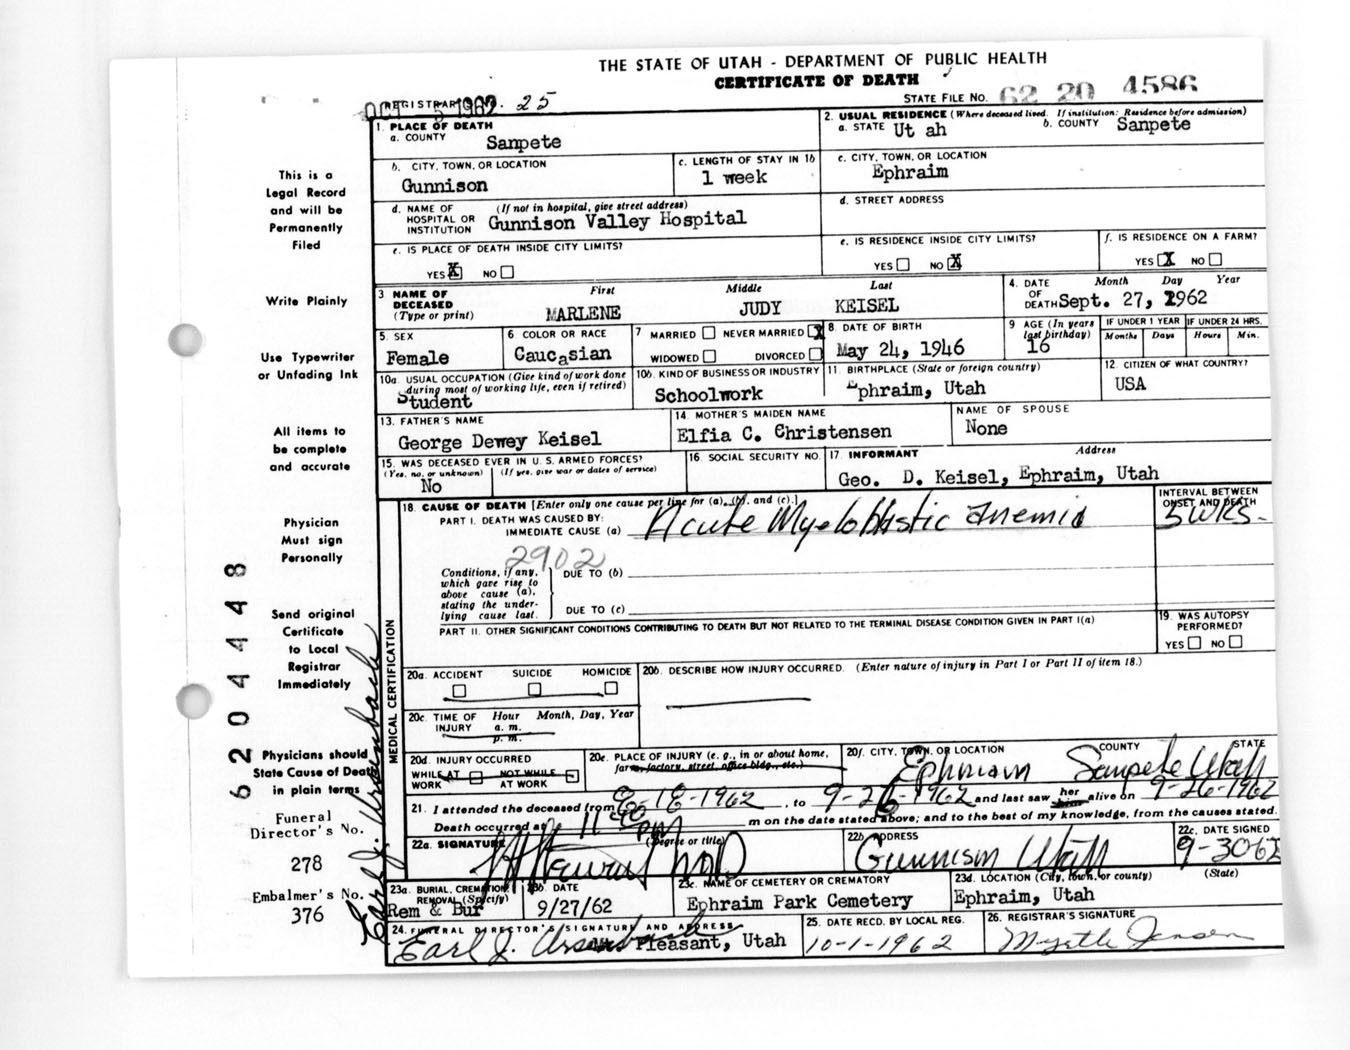 THE STATE OF UTAH - DEPARTMENT OF PUBLIC HEALTH
CERTIFICATE OF DEATH
STATE FILE NO. 62 20 4586
REGISTRAR'S NO. 25
OCT 5 1962
1. PLACE OF DEATH
a. COUNTY Sanpete
2. USUAL RESIDENCE (Where deceased lived. If institution: Residence before admission)
a. STATE Ut ah b. COUNTY Sanpete
b. CITY, TOWN, OR LOCATION Gunnison
c. LENGTH OF STAY IN 1b 1 week
c. CITY, TOWN, OR LOCATION Ephraim
d. NAME OF HOSPITAL OR INSTITUTION (If not in hospital, give street address) Gunnison Valley Hospital
d. STREET ADDRESS
e. IS PLACE OF DEATH INSIDE CITY LIMITS?
YES X NO
e. IS RESIDENCE INSIDE CITY LIMITS?
YES NO X
f. IS RESIDENCE ON A FARM?
YES X NO
3 NAME OF DECEASED (Type or print)
First Middle Last
MARLENE JUDY KEISEL
4. DATE OF DEATH Month Day Year
Sept. 27, 1962
5. SEX Female
6 COLOR OR RACE Caucasian
7 MARRIED NEVER MARRIED X
WIDOWED DIVORCED
8. DATE OF BIRTH May 24, 1946
9 AGE (In years last birthday) 16
IF UNDER 1 YEAR Months Days
IF UNDER 24 HRS. Hours Min.
10a. USUAL OCCUPATION (Give kind of work done during most of working life, even if retired) Student
10b. KIND OF BUSINESS OR INDUSTRY Schoolwork
11. BIRTHPLACE (State or foreign country) Ephraim, Utah
12. CITIZEN OF WHAT COUNTRY? USA
13. FATHER'S NAME George Dewey Keisel
14. MOTHER'S MAIDEN NAME Elfia C. Christensen
NAME OF SPOUSE None
15. WAS DECEASED EVER IN U. S. ARMED FORCES?
(Yes, no, or unknown) (If yes, give war or dates of service)
No
16. SOCIAL SECURITY NO.
17. INFORMANT Address
Geo. D. Keisel, Ephraim, Utah
18. CAUSE OF DEATH [Enter only one cause per line for (a), (b), and (c).]
PART I. DEATH WAS CAUSED BY:
IMMEDIATE CAUSE (a) Acute Myeloblastic Anemia
INTERVAL BETWEEN ONSET AND DEATH
5 wks-
2902
Conditions, if any, which gave rise to above cause (a), stating the underlying cause last.
DUE TO (b)
DUE TO (c)
PART II. OTHER SIGNIFICANT CONDITIONS CONTRIBUTING TO DEATH BUT NOT RELATED TO THE TERMINAL DISEASE CONDITION GIVEN IN PART I(a)
19. WAS AUTOPSY PERFORMED?
YES NO
20a. ACCIDENT SUICIDE HOMICIDE
20b. DESCRIBE HOW INJURY OCCURRED. (Enter nature of injury in Part I or Part II of item 18.)
20c. TIME OF INJURY Hour Month, Day, Year
a. m.
p. m.
20d. INJURY OCCURRED
WHILE AT WORK NOT WHILE AT WORK
20e. PLACE OF INJURY (e. g., in or about home, farm, factory, street, office bldg., etc.)
20f. CITY, TOWN, OR LOCATION COUNTY STATE
Ephriam Sanpete Utah
21. I attended the deceased from 8-18-1962, to 9-26-1962 and last saw her him alive on 9-26-1962
Death occurred at 11 40 PM m on the date stated above; and to the best of my knowledge, from the causes stated.
22a. SIGNATURE (Degree or title) MD
22b ADDRESS Gunnison Utah
22c. DATE SIGNED 9-30 62
23a. BURIAL, CREMATION, REMOVAL (Specify) Rem & Bur
23b. DATE 9/27/62
23c. NAME OF CEMETERY OR CREMATORY Ephraim Park Cemetery
23d. LOCATION (City, town, or county) (State)
Ephraim, Utah
24. FUNERAL DIRECTOR'S SIGNATURE AND ADDRESS
Earl J. Pleasant, Utah
25. DATE RECD. BY LOCAL REG. 10-1-1962
26. REGISTRAR'S SIGNATURE Myrtle Jensen
MEDICAL CERTIFICATION
This is a
Legal Record
and will be
Permanently
Filed
Write Plainly
Use Typewriter
or Unfading Ink
All items to
be complete
and accurate
Physician
Must sign
Personally
Send original
Certificate
to Local
Registrar
Immediately
Physicians should
State Cause of Death
in plain terms
Funeral
Director's No.
278
Embalmer's No.
376
Earl J.
6204448